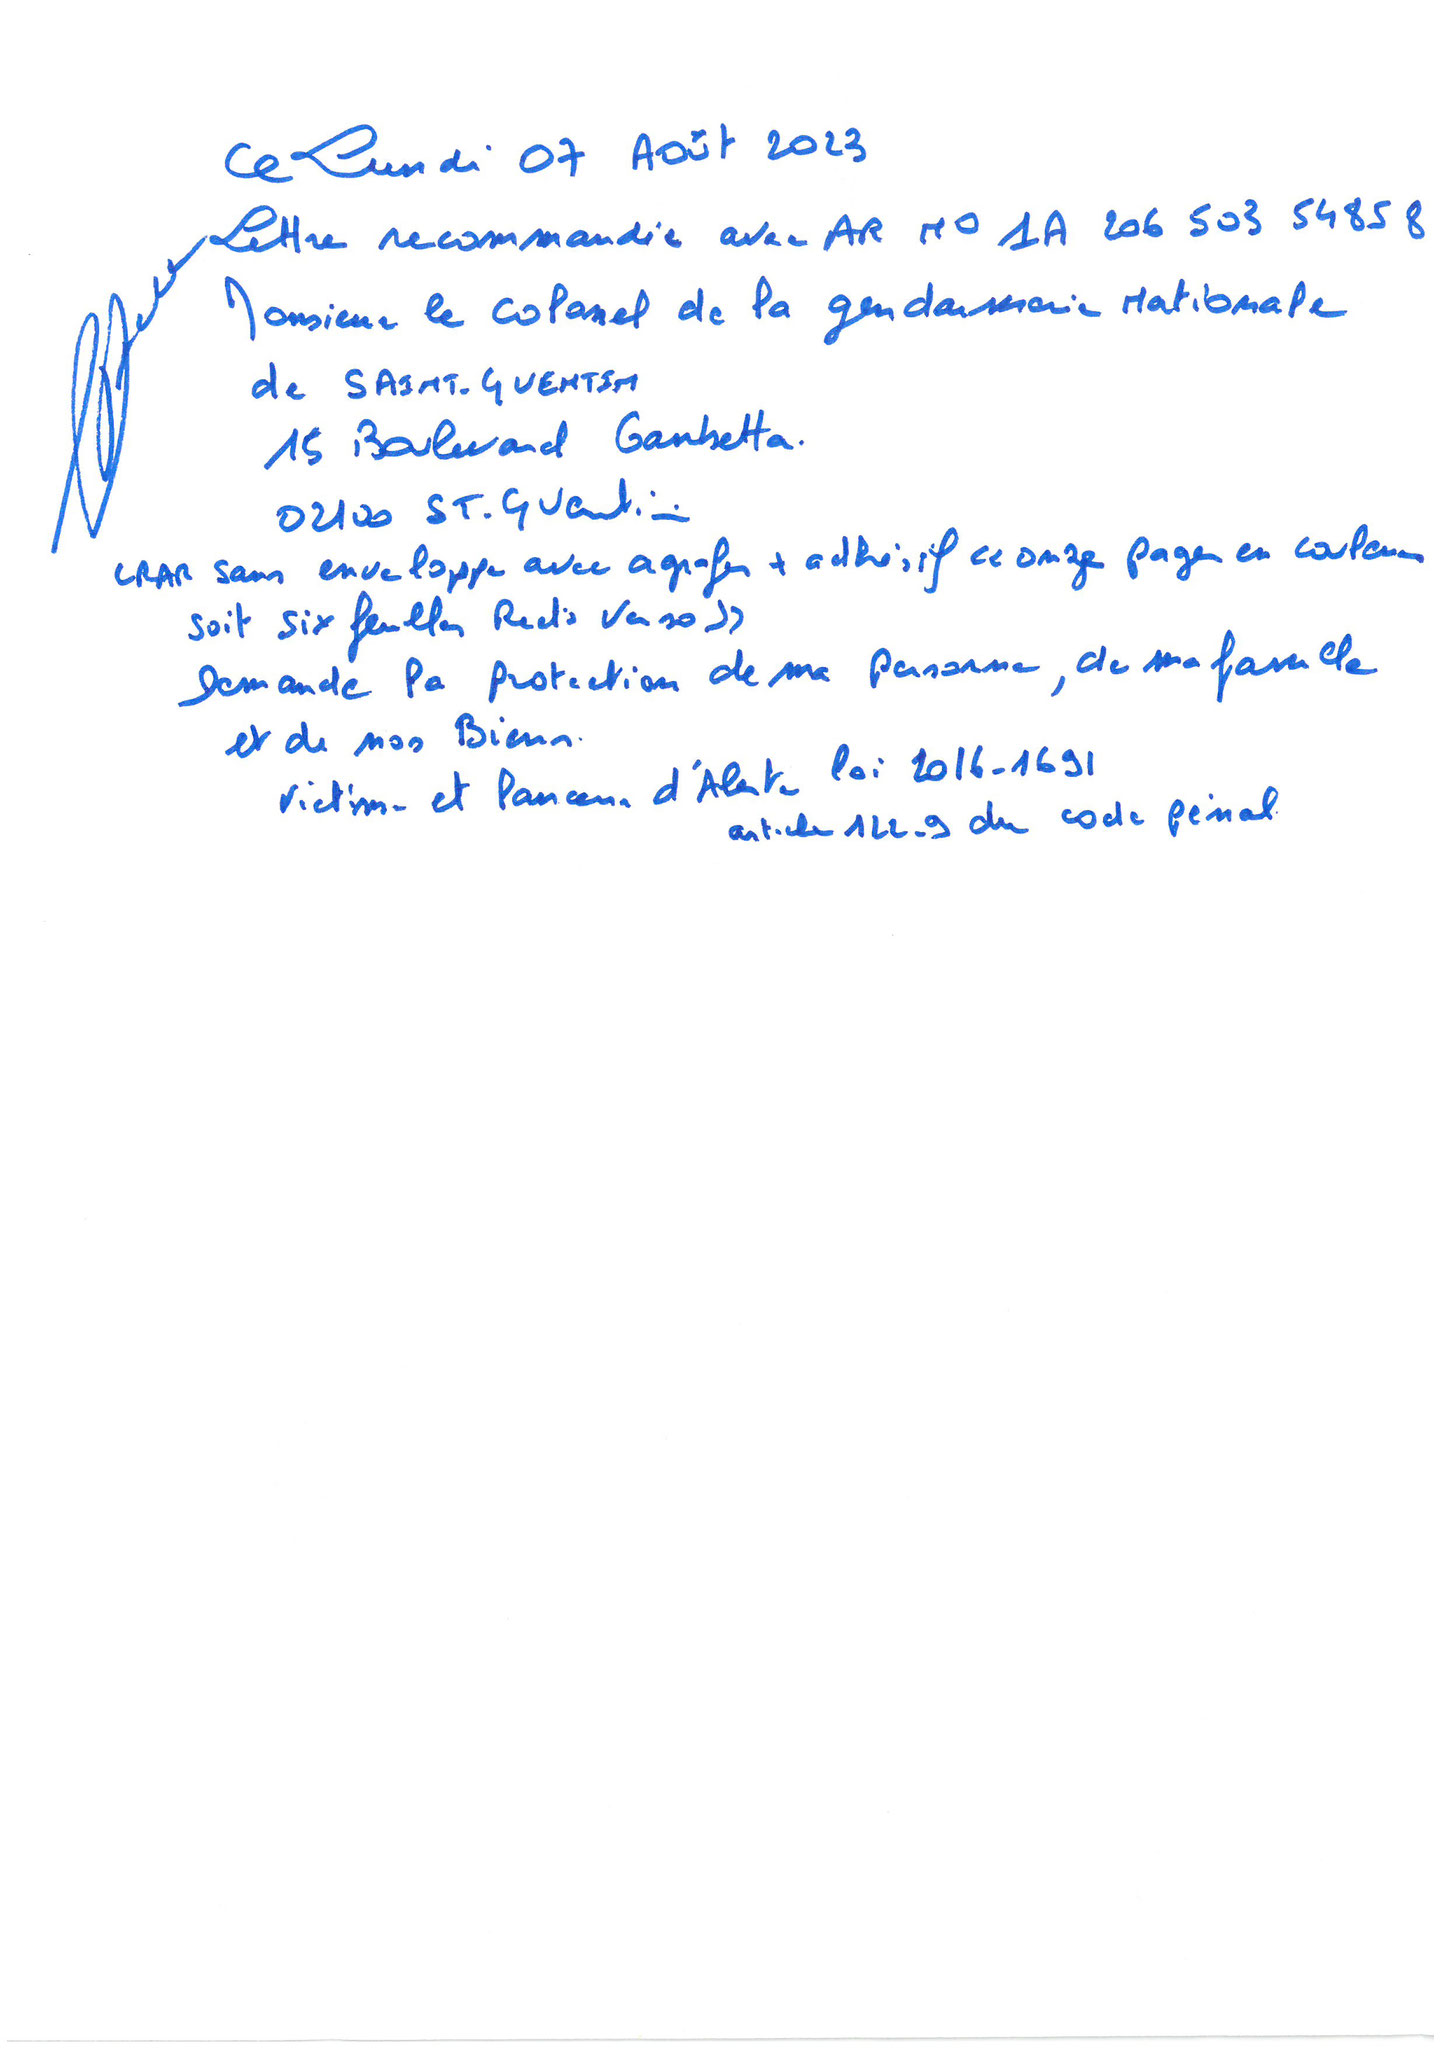 Ce Lundi 07 Août 2023
Lettre recommandée avec AR N° 1A 206 503 54858
Monsieur le colonel de la gendarmerie Nationale
de SAINT-QUENTIN
15 Boulevard Gambetta.
02100 ST-Quentin
LRAR sans enveloppe avec agrafes + adhésif ce onze pages en couleur
soit six feuilles Recto Verso »
Demande la protection de ma personne, de ma famille
et de nos Biens.
victime et lanceur d'Alerte loi 2016-1691
article 122-9 du code pénal.